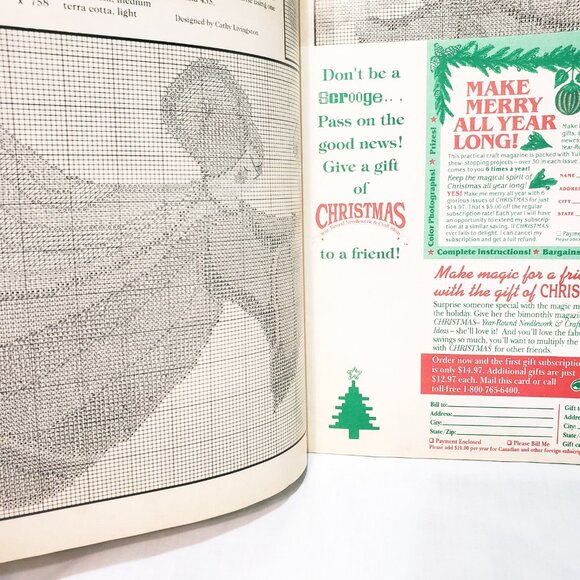 758
medium
terra cotta, light
using one
435.
Designed by Cathy Livingston
Don't be a
Scrooge...
Pass on the
good news!
Give a gift
of
CHRISTMAS
Year-Round Needlework & Craft Ideas
to a friend!
Color Photographs! ★ Prizes!
MAKE
MERRY
ALL YEAR
LONG!
This practical craft magazine is packed with
show-stopping projects—over 30 in each issue
comes to you 6 times a year!
Keep the magical spirit of
Christmas all year long!
YES! Make me merry all year with 6
glorious issues of CHRISTMAS for just
$14.97. That's $5.00 off the regular
subscription rate! Each year I will have
an opportunity to extend my subscrip-
tion at a similar saving. If CHRISTMAS
ever fails to delight, I can cancel my
subscription and get a full refund.
Make
gifts,
NAME
ADDRESS
CITY
STATE
Please add
★ Complete Instructions! ★ Bargains
Make magic for a
with the gift of
Surprise someone special with the magic
the holiday. Give her the bimonthly
CHRISTMAS–Year-Round Needlework &
Ideas – she'll love it! And you'll love the
savings so much, you'll want to multiply the
with CHRISTMAS for other friends.
Order now and the first gift subscription
is only $14.97. Additional gifts are just
$12.97 each. Mail this card or call
toll-free 1-800-765-6400.
Bill to:
Address:
City:
State/Zip:
☐ Payment Enclosed ☐ Please Bill Me
Please add $10.00 per year for Canadian and other foreign
Gift
Address:
City:
State/
Gift